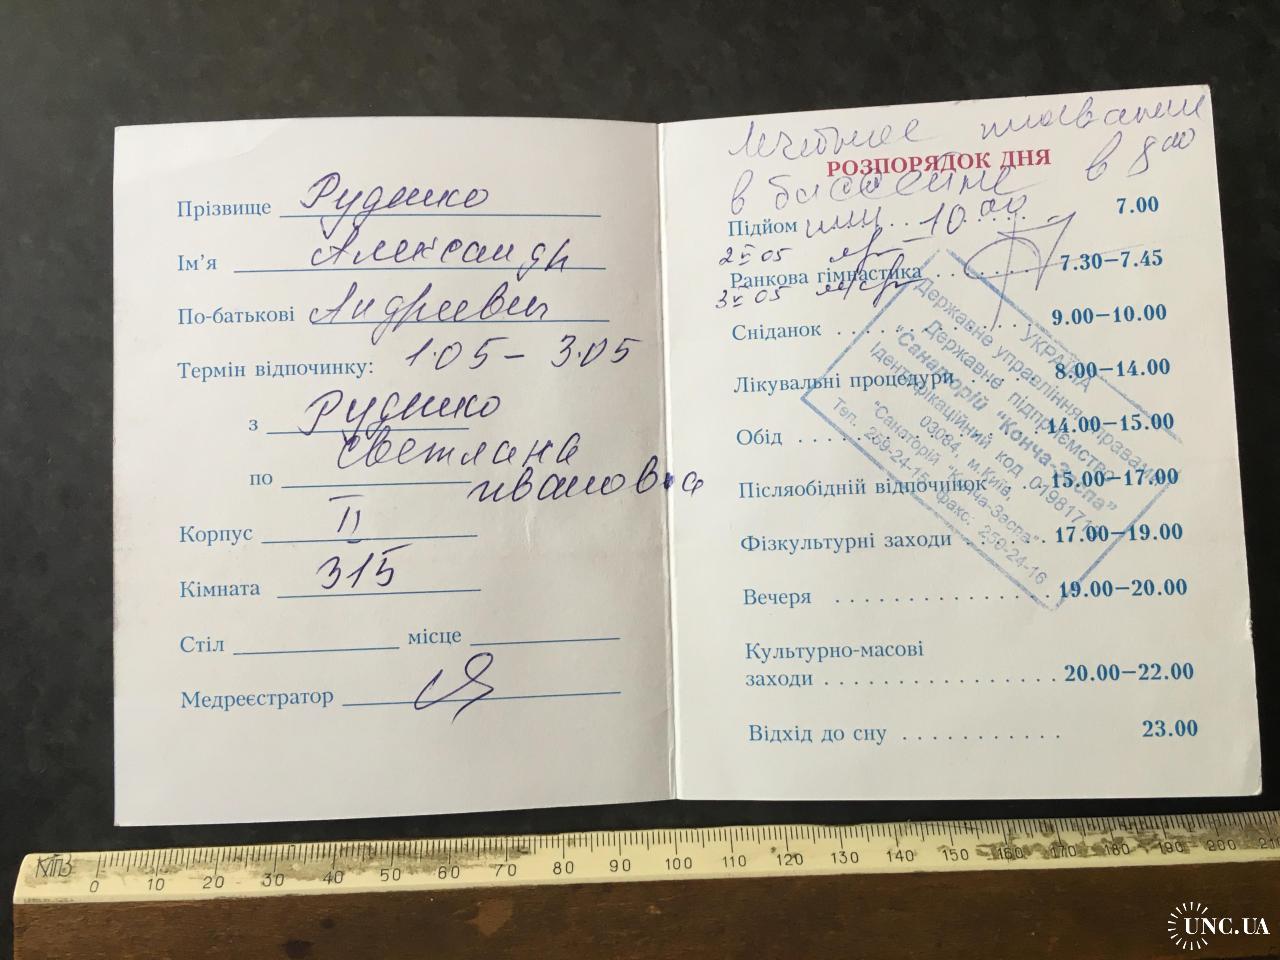 Прізвище Руденко
Ім'я Александр
По-батькові Андреевич
Термін відпочинку: 1.05 – 3.05
з Руденко
Светлана
по Ивановна
Корпус II
Кімната 315
Стіл місце
Медреєстратор
Лечебное плавание
РОЗПОРЯДОК ДНЯ
в бассейне в 8 00
или 10 00
Підйом . . . . . . . 7.00
2 05
Ранкова гімнастика . . . . . . . 7.30–7.45
3 05
Сніданок . . . . . . . . . . . 9.00–10.00
Лікувальні процедури . . . . . 8.00–14.00
Обід . . . . . . . . . . . . . 14.00–15.00
Післяобідній відпочинок . . . 15.00–17.00
Фізкультурні заходи . . . . . 17.00–19.00
Вечеря . . . . . . . . . . . . . . . 19.00–20.00
Культурно-масові
заходи . . . . . . . . . . . . . . . . 20.00–22.00
Відхід до сну . . . . . . . . . . . 23.00
УКРАЇНА
Державне управління справами
Державне підприємство
"Санаторій "Конча-Заспа"
Ідентифікаційний код 0198171
03084, м.Київ,
"Санаторій "Конча-Заспа"
Тел.: 259-24-15, факс: 259-24-16
КПЗ 0 10 20 30 40 50 60 70 80 90 100 110 120 130 140 150 160 170 180 190 200 210
UNC.UA